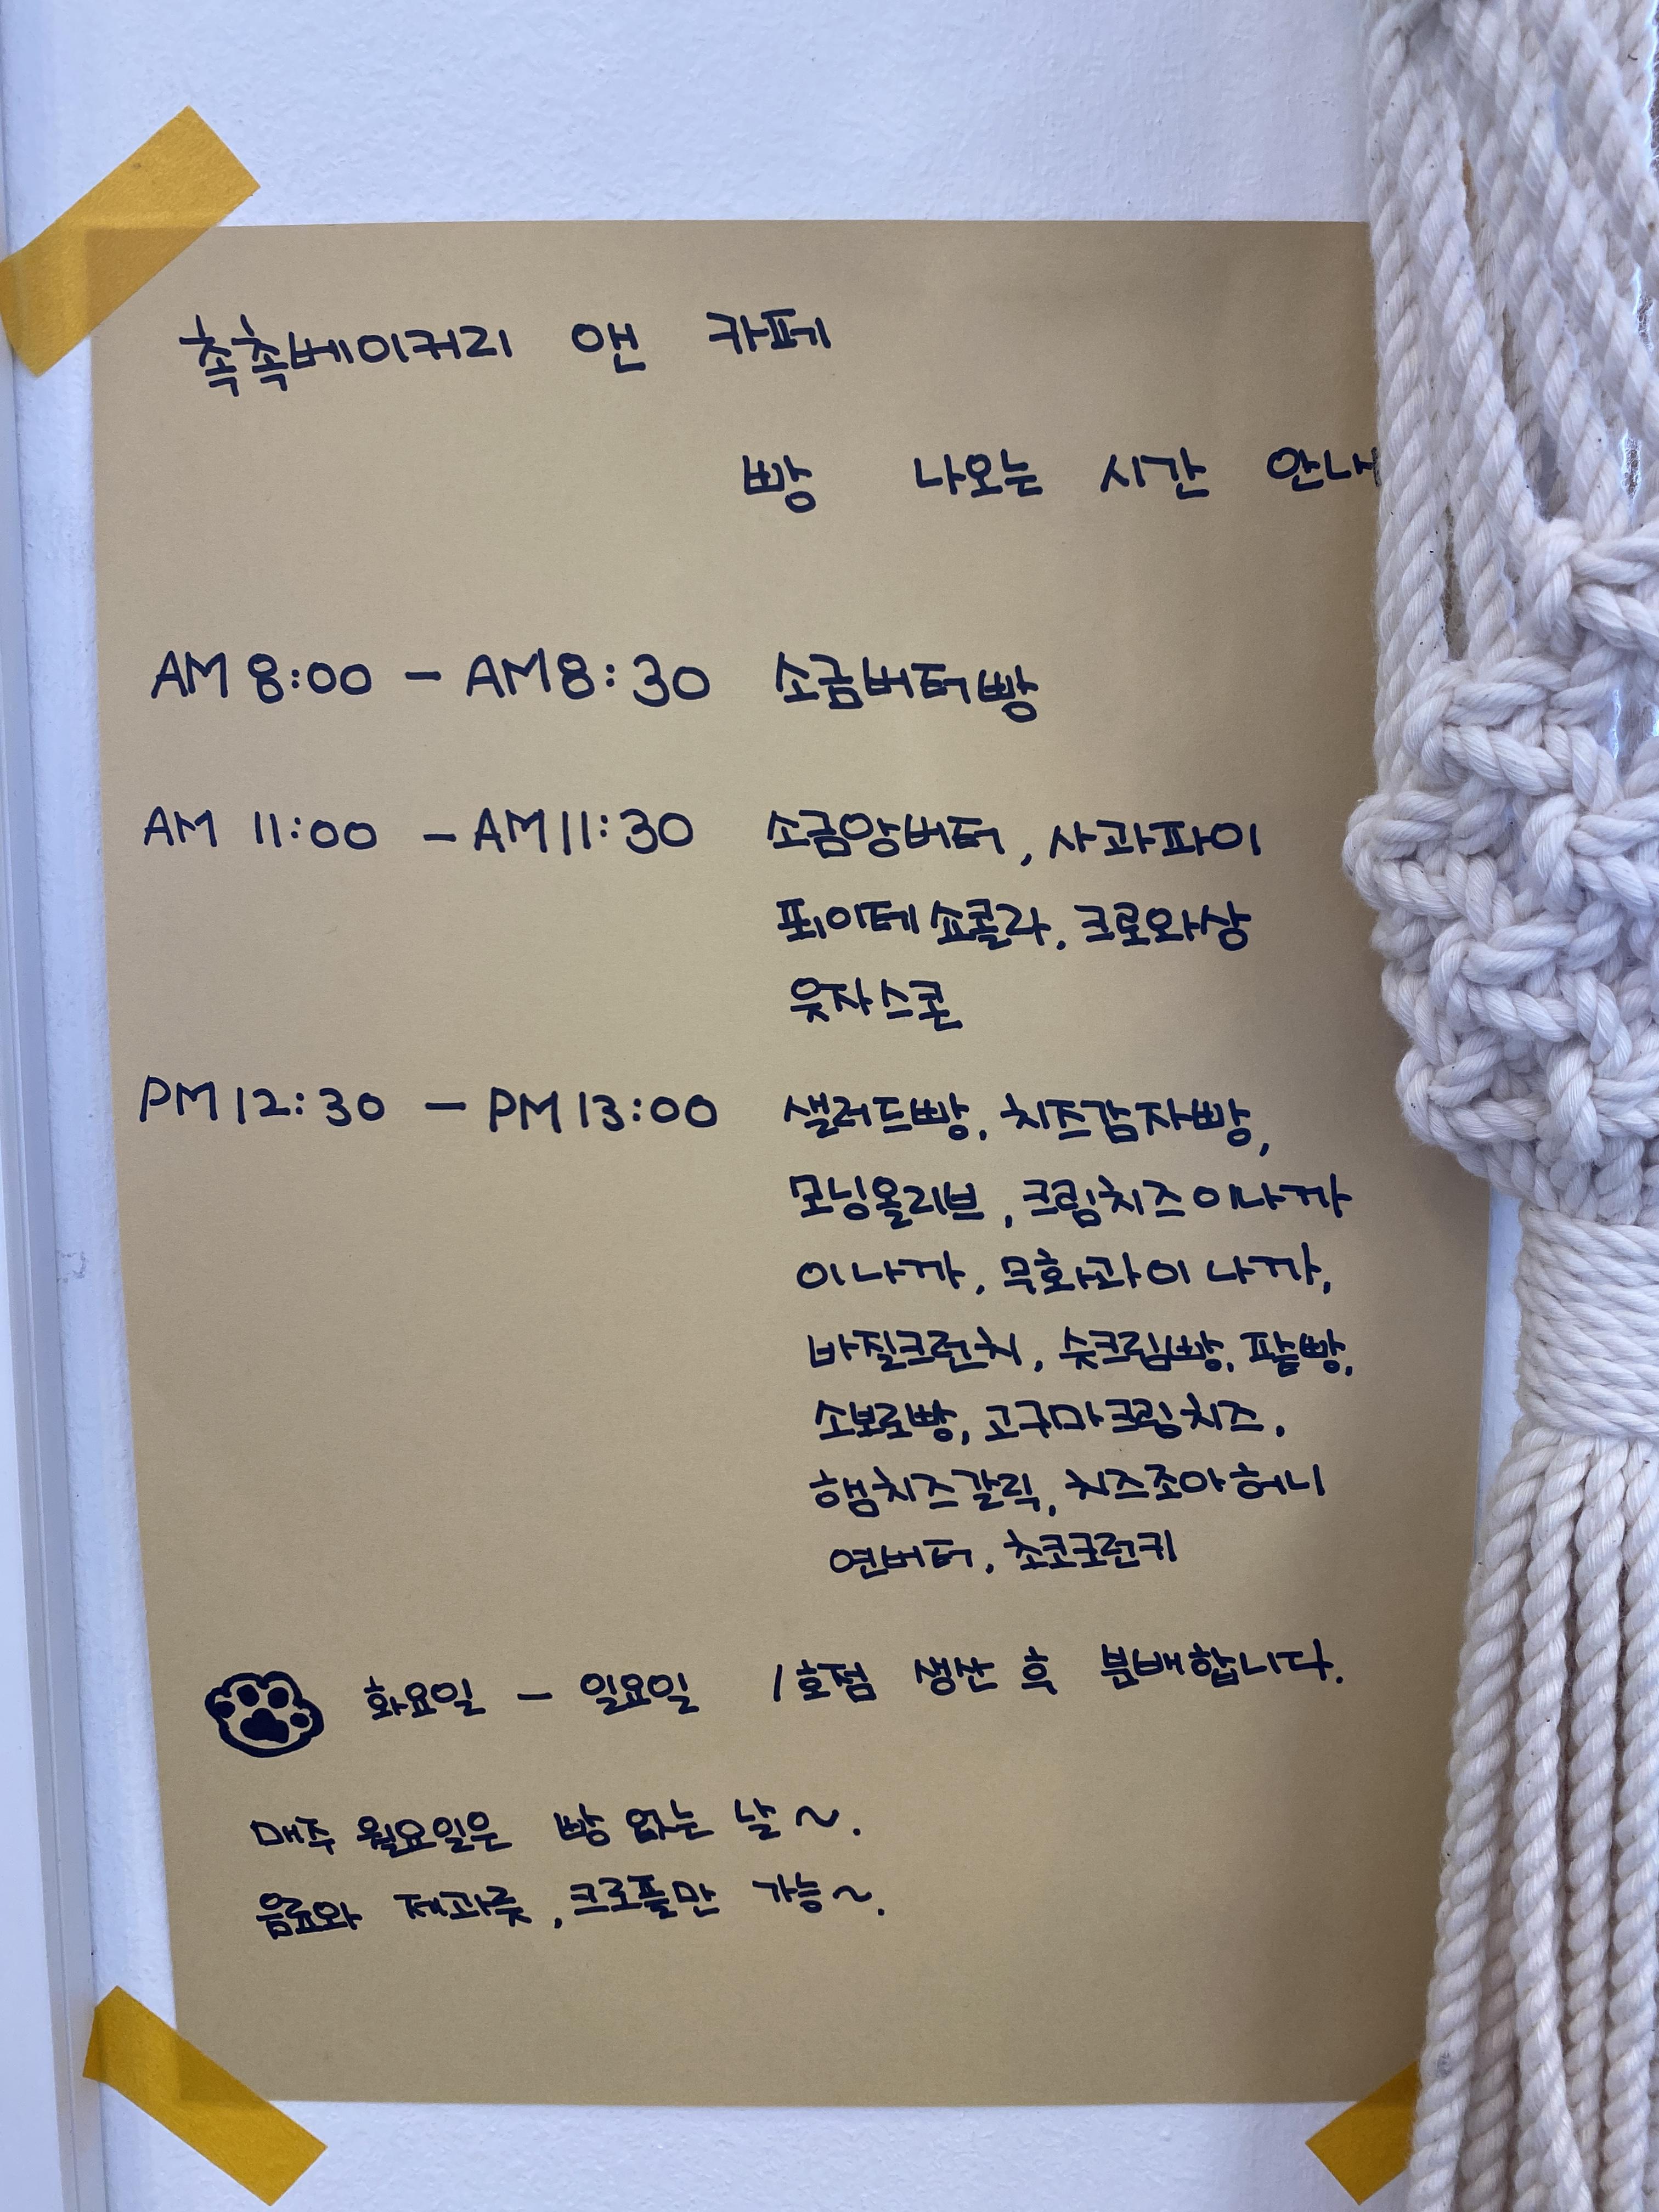 촉촉베이커리 앤 카페
빵 나오는 시간 안내
AM 8:00 - AM 8:30 소금버터빵
AM 11:00 - AM 11:30 소금앙버터, 사과파이
푀이테 쇼콜라, 크로와상
웃자스콘
PM 12:30 - PM 13:00 샐러드빵, 치즈감자빵,
모닝올리브, 크림치즈이나까
이나까, 무화과이나까,
바질크런치, 슛크림빵, 팥빵,
소보로빵, 고구마크림치즈,
햄치즈갈릭, 치즈조아허니
연버터, 초코크런키
화요일 - 일요일 1호점 생산 후 분배합니다.
매주 월요일은 빵 없는 날~.
음료와 제과류, 크로플만 가능~.